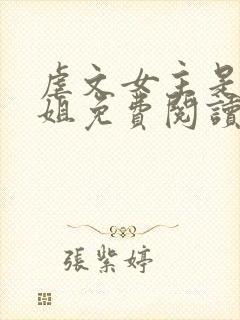 虐文女主是
姐免費閱讀
張紫婷